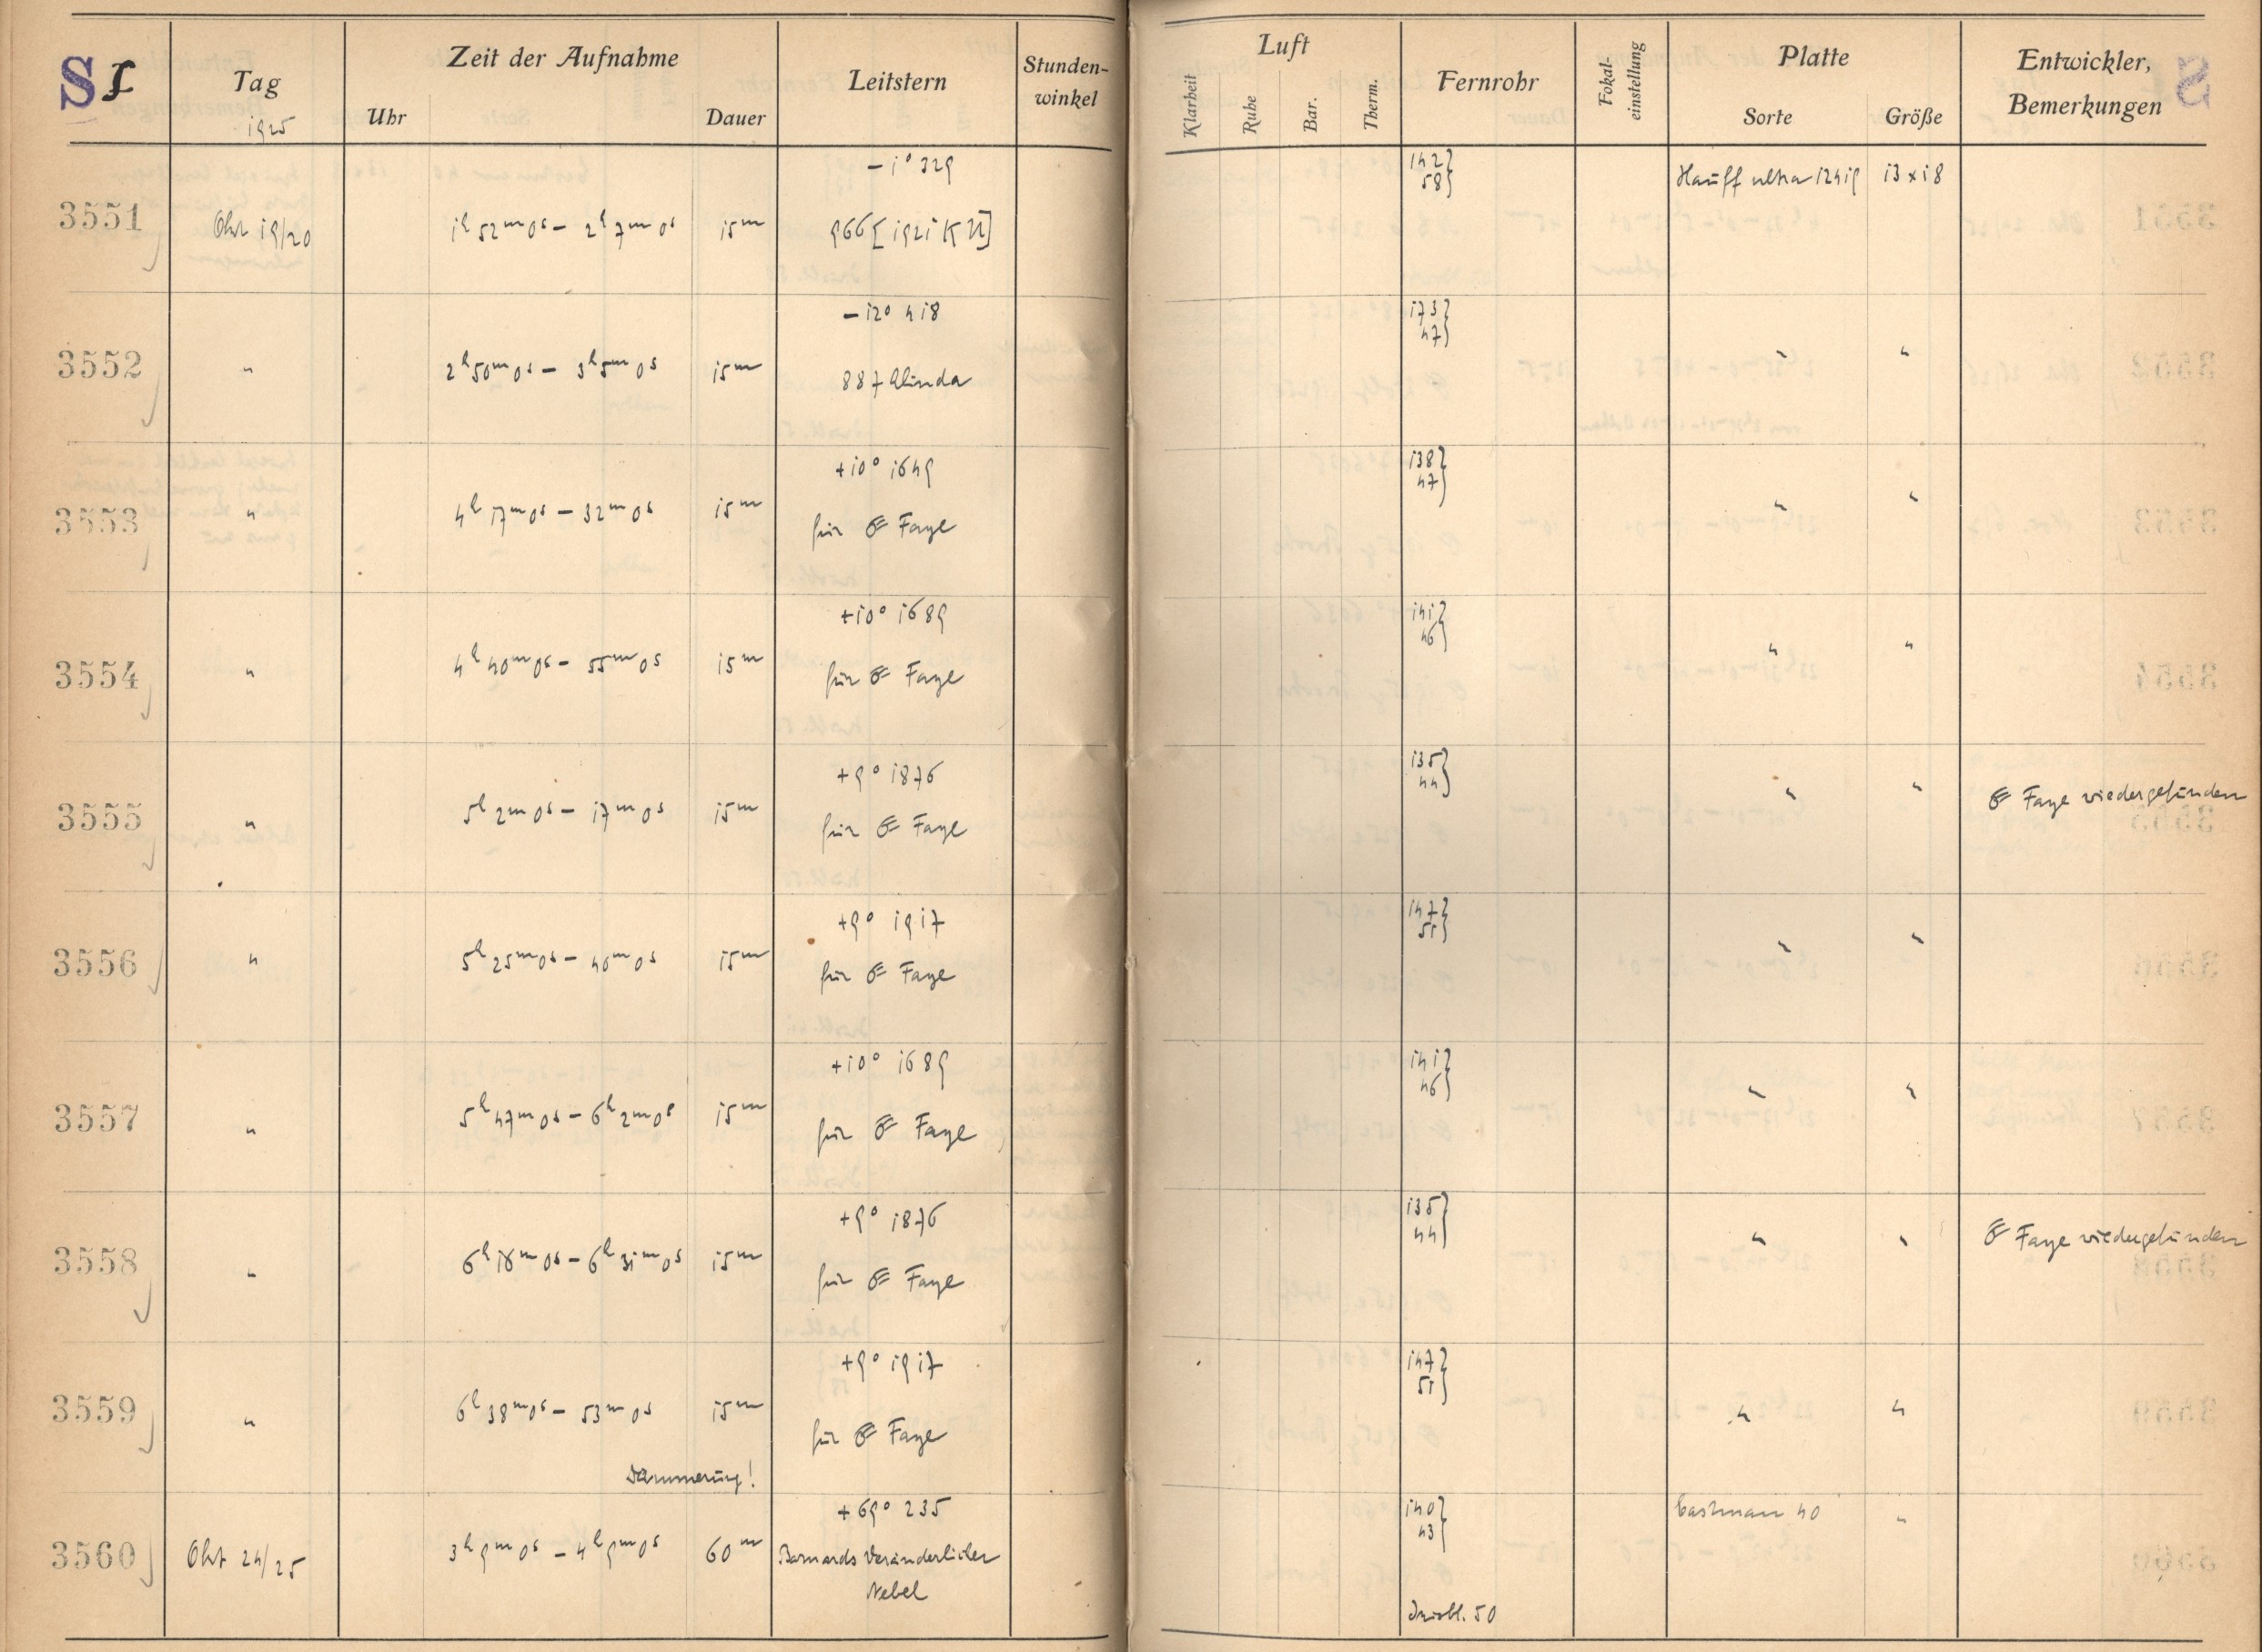 S L
Tag
1925
Zeit der Aufnahme
Uhr
Dauer
Leitstern
Stunden-
winkel
Luft
Klarheit
Ruhe
Bar.
Therm.
Fernrohr
Fokal-
einstellung
Platte
Sorte
Größe
Entwickler,
Bemerkungen
−1° 329
142}
58}
Hauff ultra 12419 13 x 18
3551 Okt 19/20 1h 52m 0s − 2h 7m 0s 15m 966 [1921 KU]
−12° 418
173}
47}
3552 " 2h 50m 0s − 3h 5m 0s 15m 887 Alinda " "
+10° 1649
138}
47}
3553 " 4h 17m 0s − 32m 0s 15m für ☄ Faye " "
+10° 1689
141}
46}
3554 " 4h 40m 0s − 55m 0s 15m für ☄ Faye " "
+9° 1876
135}
44}
3555 " 5h 2m 0s − 17m 0s 15m für ☄ Faye " " ☄ Faye wiedergefunden
+9° 1917
147}
51}
3556 " 5h 25m 0s − 40m 0s 15m für ☄ Faye " "
+10° 1689
141}
46}
3557 " 5h 47m 0s − 6h 2m 0s 15m für ☄ Faye " "
+9° 1876
135}
44}
3558 " 6h 16m 0s − 6h 31m 0s 15m für ☄ Faye " " ☄ Faye wiedergefunden
+9° 1917
147}
51}
3559 " 6h 38m 0s − 53m 0s 15m für ☄ Faye " "
Dämmerung!
+69° 235
140}
43}
Eastman 40 "
3560 Okt 24/25 3h 9m 0s − 4h 9m 0s 60m Barnards Veränderlicher
Nebel
50